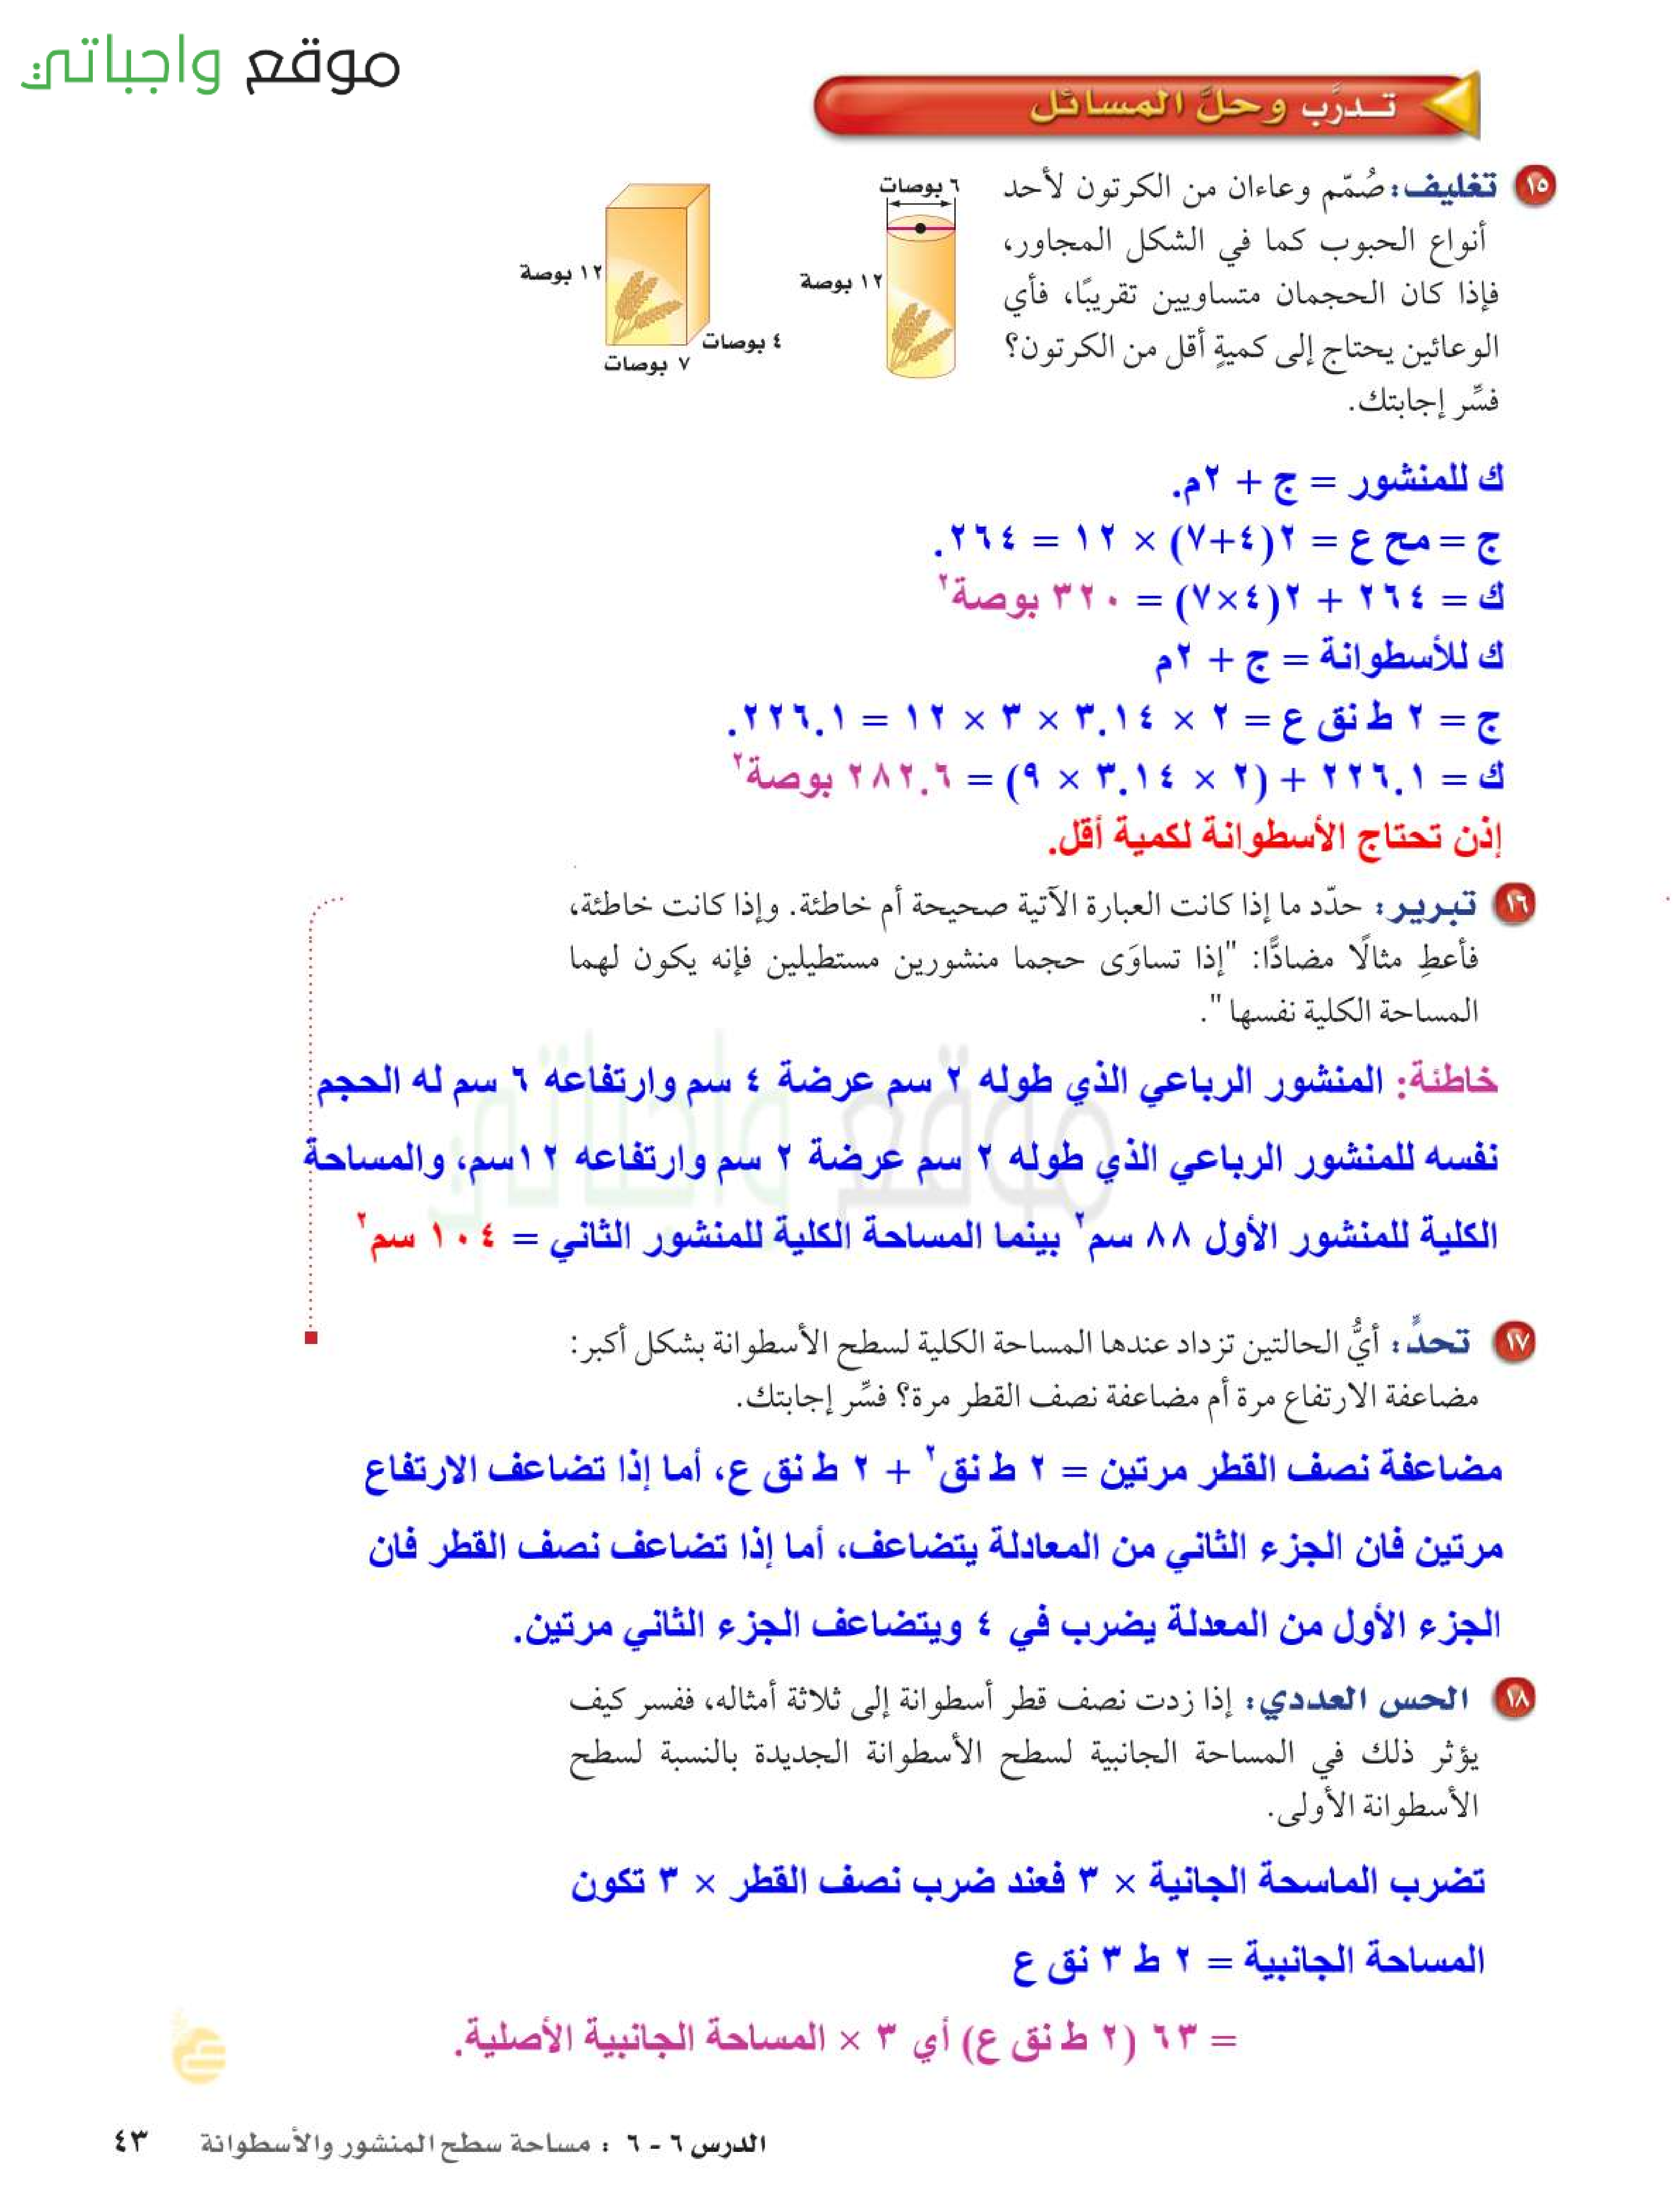 موقع واجباتي
تدرَّب وحلَّ المسائل
١٥ تغليف: صُمّم وعاءان من الكرتون لأحد
أنواع الحبوب كما في الشكل المجاور،
فإذا كان الحجمان متساويين تقريبًا، فأي
الوعائين يحتاج إلى كميةٍ أقل من الكرتون؟
فسِّر إجابتك.
٦ بوصات
١٢ بوصة
١٢ بوصة
٤ بوصات
٧ بوصات
ك للمنشور = ج + ٢م.
ج = مح ع = ٢(٤+٧) × ١٢ = ٢٦٤.
ك = ٢٦٤ + ٢(٤×٧) = ٣٢٠ بوصة٢
ك للأسطوانة = ج + ٢م
ج = ٢ ط نق ع = ٢ × ٣.١٤ × ٣ × ١٢ = ٢٢٦.١.
ك = ٢٢٦.١ + (٢ × ٣.١٤ × ٩) = ٢٨٢.٦ بوصة٢
إذن تحتاج الأسطوانة لكمية أقل.
١٦ تبرير: حدّد ما إذا كانت العبارة الآتية صحيحة أم خاطئة. وإذا كانت خاطئة،
فأعطِ مثالًا مضادًّا: "إذا تساوَى حجما منشورين مستطيلين فإنه يكون لهما
المساحة الكلية نفسها".
خاطئة: المنشور الرباعي الذي طوله ٢ سم عرضة ٤ سم وارتفاعه ٦ سم له الحجم
نفسه للمنشور الرباعي الذي طوله ٢ سم عرضة ٢ سم وارتفاعه ١٢سم، والمساحة
الكلية للمنشور الأول ٨٨ سم٢ بينما المساحة الكلية للمنشور الثاني = ١٠٤ سم٢
١٧ تحدٍّ: أيُّ الحالتين تزداد عندها المساحة الكلية لسطح الأسطوانة بشكل أكبر:
مضاعفة الارتفاع مرة أم مضاعفة نصف القطر مرة؟ فسِّر إجابتك.
مضاعفة نصف القطر مرتين = ٢ ط نق٢ + ٢ ط نق ع، أما إذا تضاعف الارتفاع
مرتين فان الجزء الثاني من المعادلة يتضاعف، أما إذا تضاعف نصف القطر فان
الجزء الأول من المعدلة يضرب في ٤ ويتضاعف الجزء الثاني مرتين.
١٨ الحس العددي: إذا زدت نصف قطر أسطوانة إلى ثلاثة أمثاله، ففسر كيف
يؤثر ذلك في المساحة الجانبية لسطح الأسطوانة الجديدة بالنسبة لسطح
الأسطوانة الأولى.
تضرب الماسحة الجانية × ٣ فعند ضرب نصف القطر × ٣ تكون
المساحة الجانبية = ٢ ط ٣ نق ع
= ٦٣ (٢ ط نق ع) أي ٣ × المساحة الجانبية الأصلية.
الدرس ٦ - ٦ : مساحة سطح المنشور والأسطوانة ٤٣